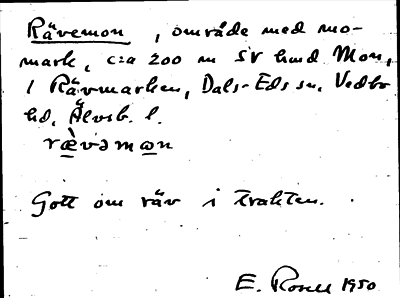 Rävemon, område med mo-
mark, c:a 200 m SV hmd Mon,
i Rävmarken, Dals-Eds sn. Vedbo
hd. Älvsb. l.
ræ̀vəmon
Gott om räv i trakten.
E. Rosell 1950